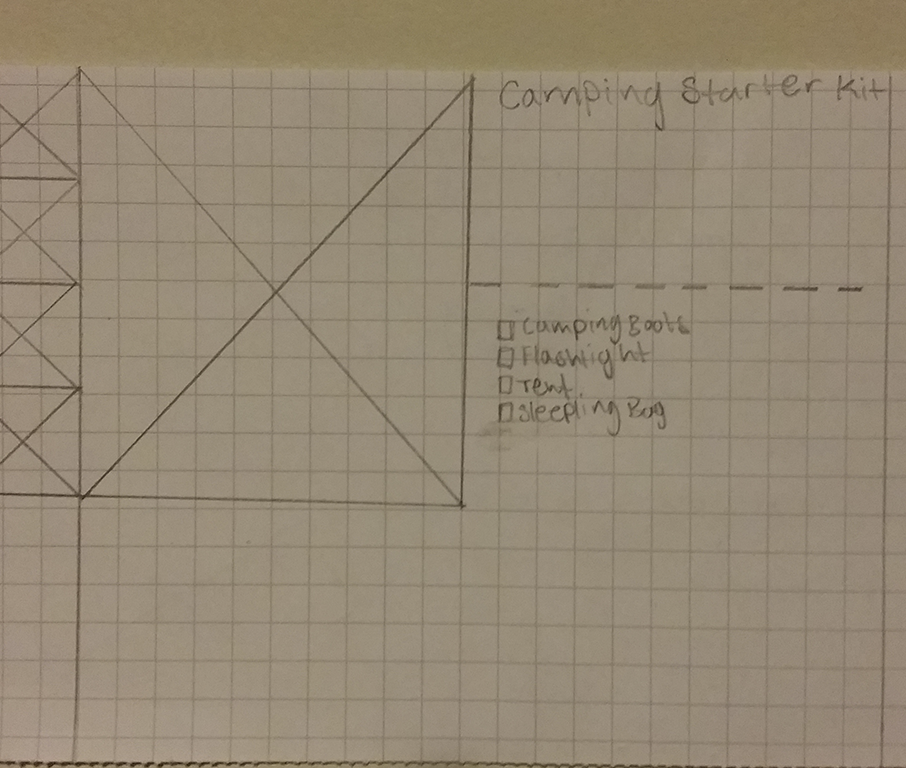 Camping Starter Kit
Camping Boots
Flashlight
Tent
Sleeping Bag